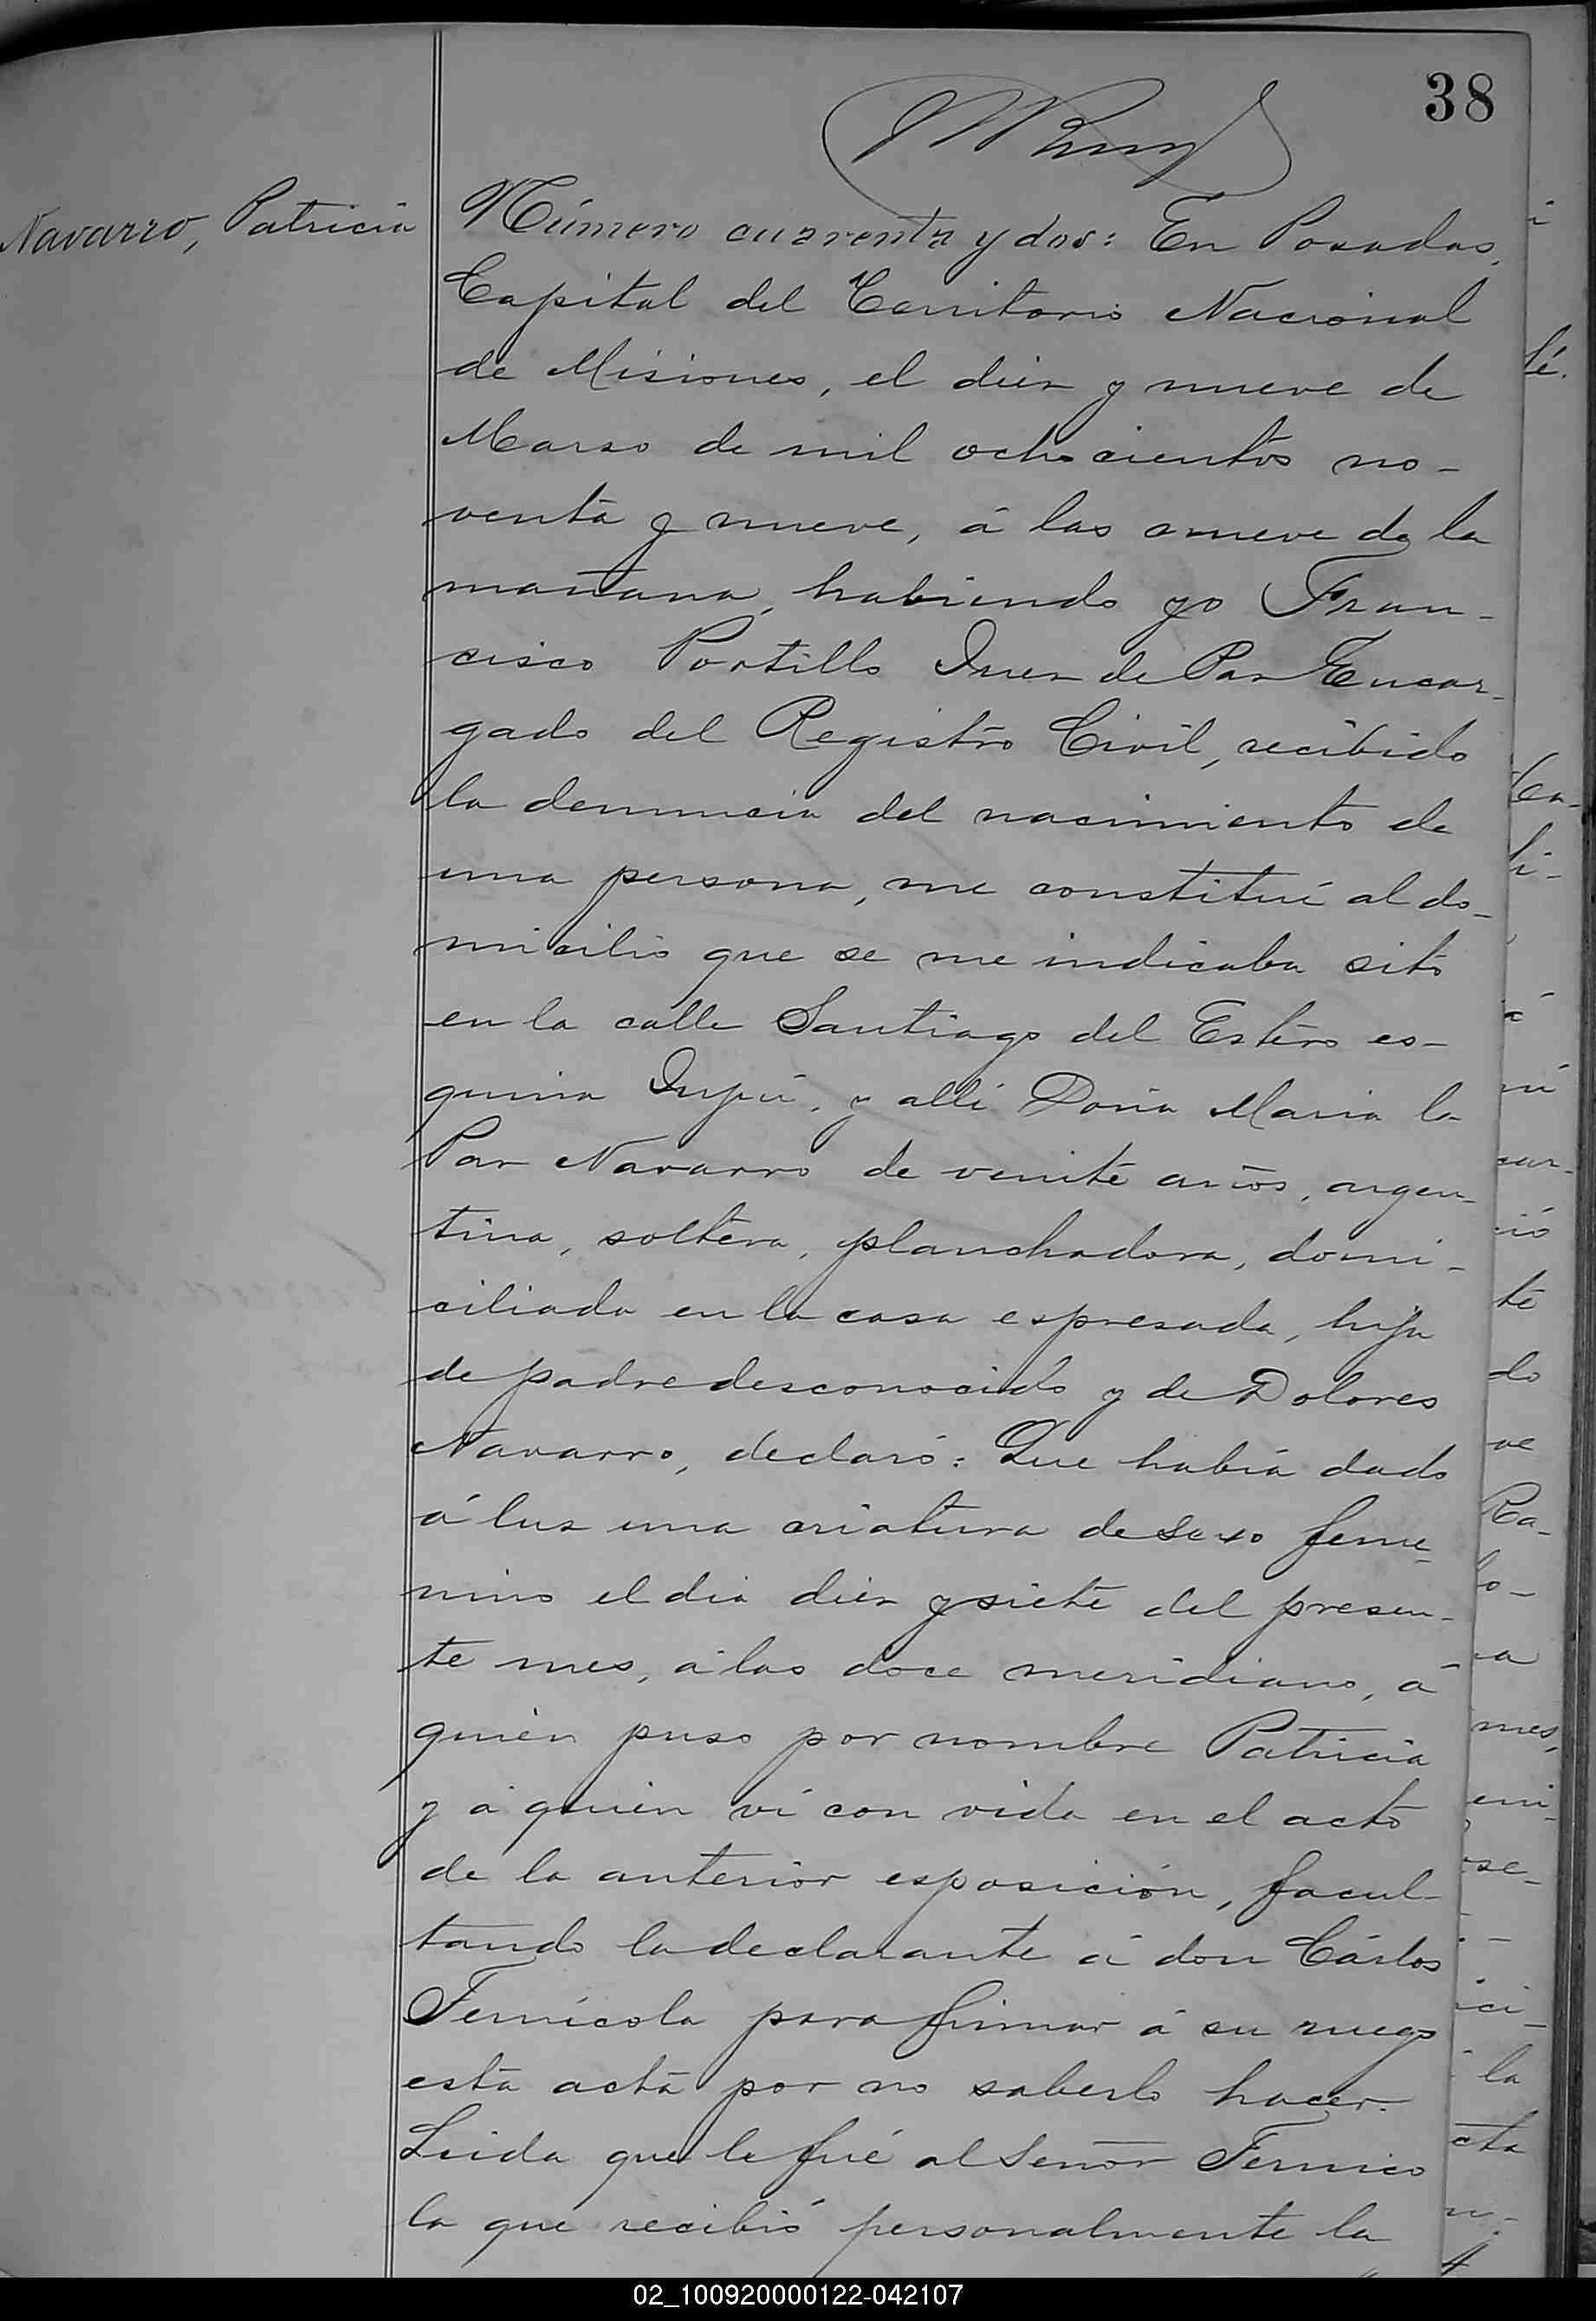 38
Navarro, Patricia
Número cuarenta y dos: En Posadas,
Capital del Territorio Nacional
de Misiones, el diez y nueve de
Marzo de mil ochocientos no-
venta y nueve, á las nueve de la
mañana, habiendo yo Fran-
cisco Portillo Juez de Paz Encar-
gado del Registro Civil, recibido
la denuncia del nacimiento de
una persona, me constituí al do-
micilio que se me indicaba sito
en la calle Santiago del Estero es-
quina Jujuí, y allí Doña Maria la
Paz Navarro de veinte años, argen-
tina, soltera, planchadora, domi-
ciliada en la casa espresada, hija
de padre desconocido y de Dolores
Navarro, declaró: Que había dado
á luz una criatura de sexo feme-
nino el dia diez y siete del presen-
te mes, á las doce meridiano, á
quien puso por nombre Patricia
y á quien ví con vida en el acto
de la anterior esposición, facul-
tando la declarante á don Cárlos
Fernícola para firmar á su ruego
esta acta por no saberlo hacer.
Leida que le fué al Señor Fernico
la que recibió personalmente la
02_100920000122-042107